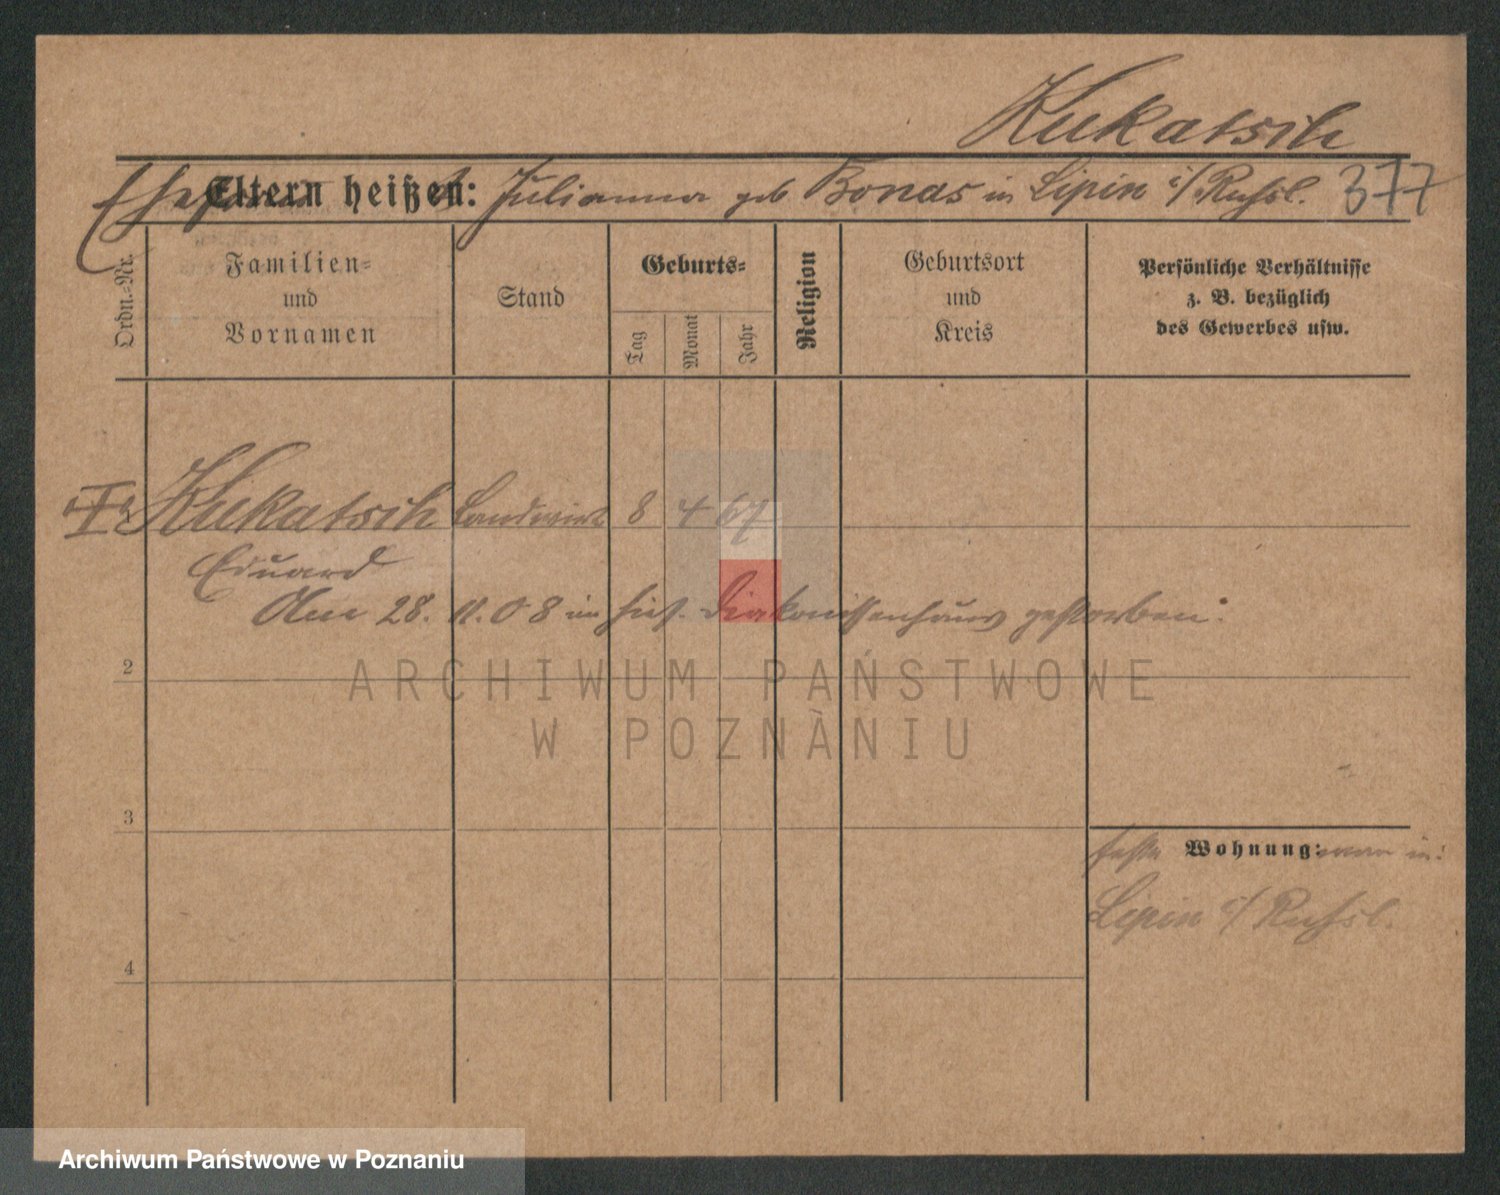 Kukatsch
Eltern heißen: Julianna geb Bonas in Lipin i/Russl. 377
Ordn.-Nr.
Familien-
und
Vornamen
Stand
Geburts-
Tag
Monat
Jahr
Religion
Geburtsort
und
Kreis
Persönliche Verhältnisse
z. B. bezüglich
des Gewerbes usw.
Kukatsch Landwirt 8 4 67
Eduard
Am 28. 11. 08 im hies. Diakonissenhaus gestorben.
2
ARCHIWUM PAŃSTWOWE
W POZNANIU
3
feste Wohnung: war in:
Lipin i/Russl.
4
Archiwum Państwowe w Poznaniu